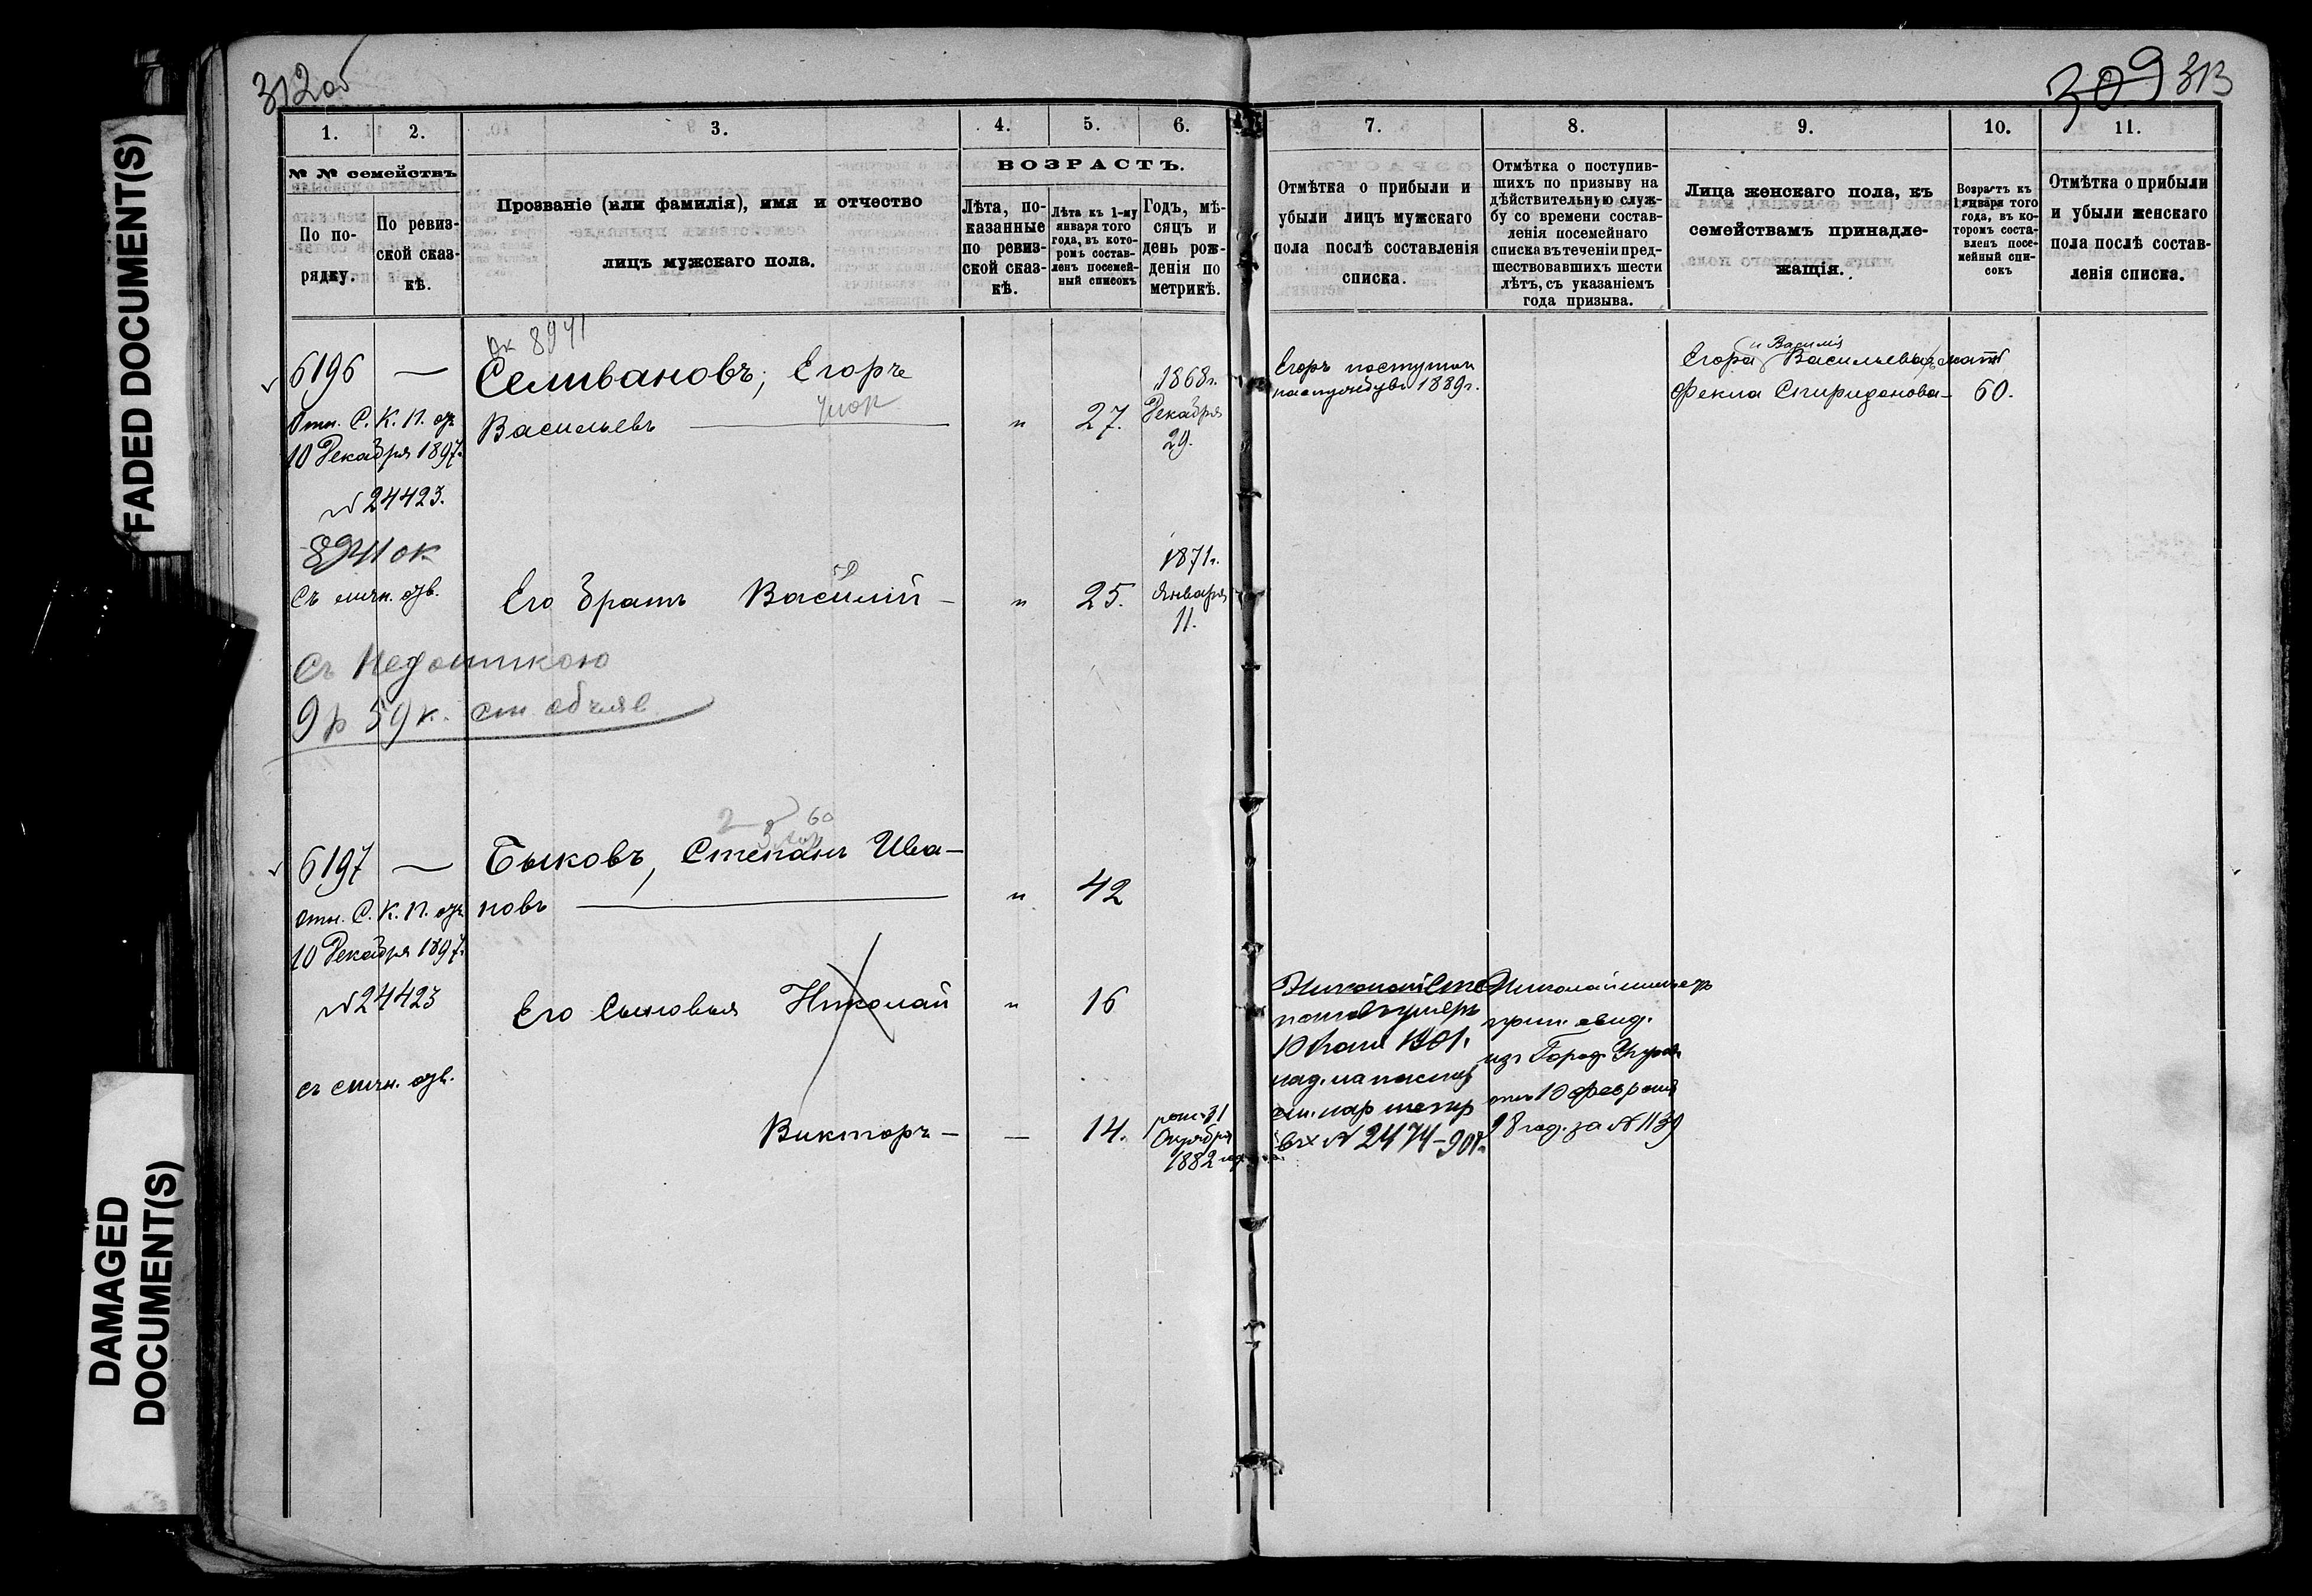 312об
309 313
FADED DOCUMENT(S)
DAMAGED
DOCUMENT(S)
1. 2. 3. 4. 5. 6. 7. 8. 9. 10. 11.
№ № семействъ
По по-
рядку.
По ревиз-
ской сказ-
кѣ.
Прозваніе (или фамилія), имя и отчество
лицъ мужскаго пола.
ВОЗРАСТЪ.
Лѣта, по-
казанные
по ревиз-
ской сказ-
кѣ.
Лѣта къ 1-му
января того
года, въ кото-
ромъ состав-
ленъ посемей-
ный списокъ
Годъ, мѣ-
сяцъ и
день рож-
денія по
метрикѣ.
Отмѣтка о прибыли и
убыли лицъ мужскаго
пола послѣ составленія
списка.
Отмѣтка о поступив-
шихъ по призыву на
дѣйствительную служ-
бу со времени состав-
ленія посемейнаго
списка въ теченіи пред-
шествовавшихъ шести
лѣтъ, съ указаніемъ
года призыва.
Лица женскаго пола, къ
семействамъ принадле-
жащія.
Возрастъ къ
1 января того
года, въ ко-
торомъ соста-
вленъ посе-
мейный спи-
сокъ
Отмѣтка о прибыли
и убыли женскаго
пола послѣ состав-
ленія списка.
ок 8941
6196 —
Отн. С. К. П. отъ
10 Декабря 1897г.
№ 24423.
8941 ок
Селивановъ, Егоръ
Васильевъ — " 27.
1868г.
Декабря
29.
Егоръ поступил
1889г.
и Василія
Егора Васильевыхъ мать
Фекла Спиридонова — 60.
Его братъ Василій — " 25.
1871г.
Января
11.
Съ недоимкою
9 р 59 к.
60
6197 —
Отн. С. К. П. отъ
10 Декабря 1897г.
№ 24423
Быковъ, Степанъ Ива-
новъ — " 42
Его сыновья Николай " 16
Викторъ — — 14.
31
Октября
1882
Николай
умеръ
10 1901.
вх № 2474-901г.
Николай
свид.
из Город. Управ
от 10 февраля
98 год. за № 1139